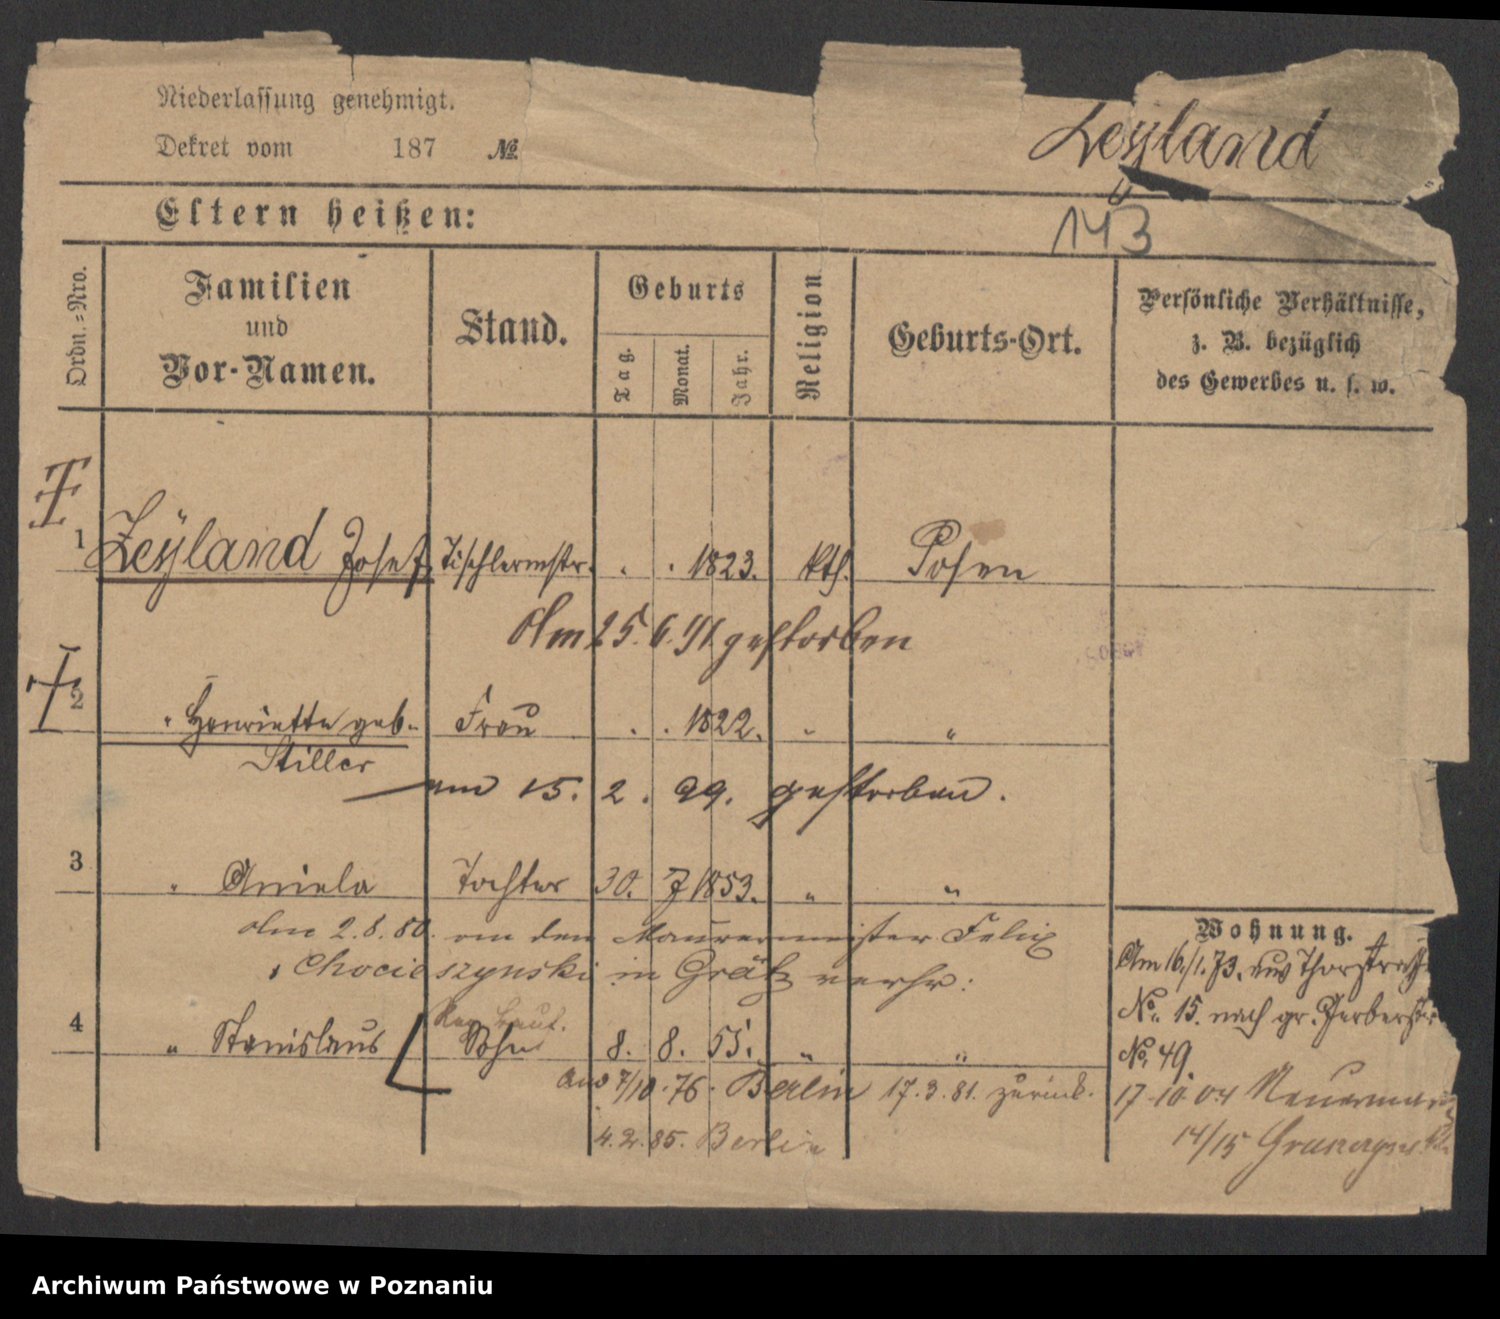 Niederlassung genehmigt.
Dekret vom 187 №
Zeyland
143
Eltern heißen:
Ordn.=Nro.
Familien
und
Vor-Namen.
Stand.
Geburts
Tag.
Monat.
Jahr.
Religion
Geburts-Ort.
Persönliche Verhältnisse,
z. B. bezüglich
des Gewerbes u. s. w.
1 Zeyland Josef Tischlermstr. . . 1823. kth. Posen
Am 25. 6. 91 gestorben
2 " Henriette geb. Frau . . 1822. " "
Stiller
am 15. 2. 99. gestorben.
3 " Aniela Tochter 30. 7 1853. " "
Am 2. 8. 80. an den Maurermeister Felix
Chocieszynski in Grätz verh:
4 " Stanislaus Sohn 8. 8. 55. " "
Aus 7/10. 76. Berlin 17. 3. 81. zurück.
4. 2. 85. Berlin
Wohnung.
Am 16./1. 73. aus Thorstraße
No. 15. nach gr. Gerberstr.
No. 49.
17-10.04
14/15
Archiwum Państwowe w Poznaniu